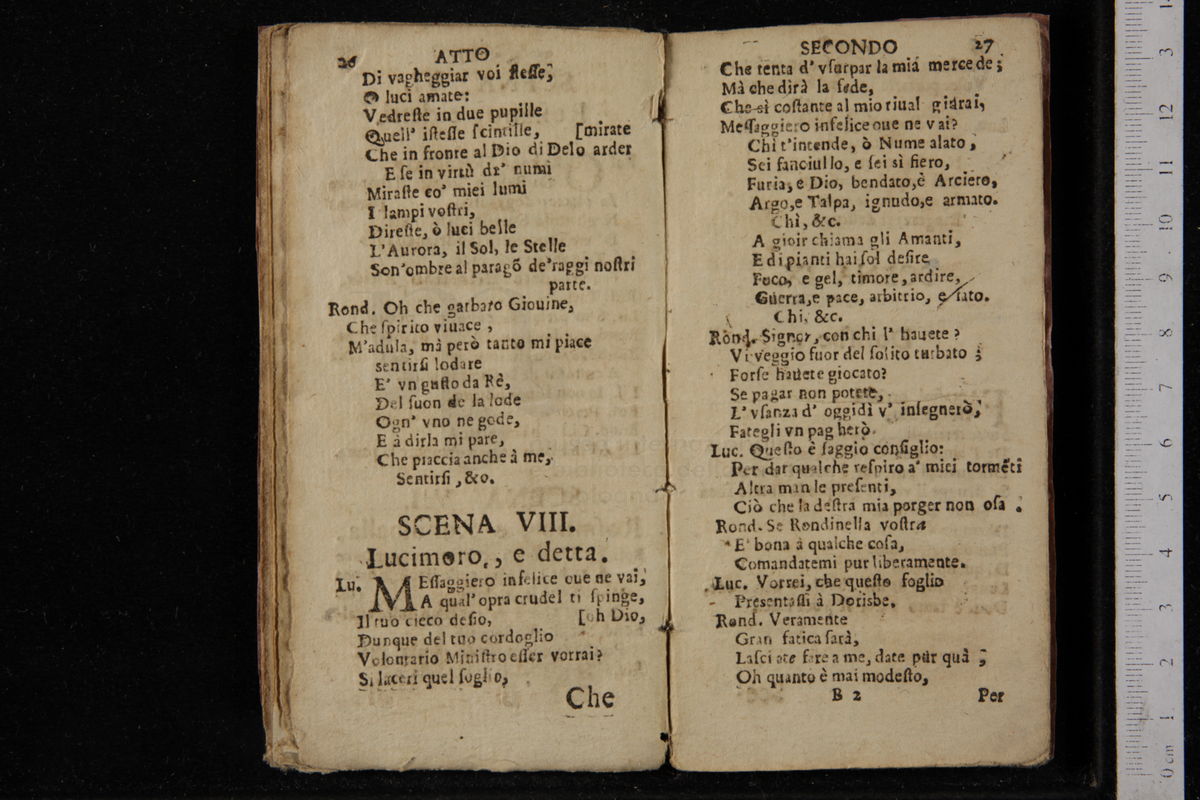 26 ATTO
Di vagheggiar voi ſteſſe,
O luci amate:
Vedreſte in due pupille
Quell' iſteſſe ſcintille, [mirate
Che in fronte al Dio di Delo arder
E ſe in virtù de' numi
Miraſte co' miei lumi
I lampi voſtri,
Direſte, ò luci belle
L'Aurora, il Sol, le Stelle
Son'ombre al paragõ de'raggi noſtri
parte.
Rond. Oh che garbato Giouine,
Che ſpirito viuace,
M'adula, mà però tanto mi piace
sentirſi lodare
E' vn guſto da Rè,
Del ſuon de la lode
Ogn' vno ne gode,
E à dirla mi pare,
Che piaccia anche à me,
Sentirſi, &c.
SCENA VIII.
Lucimoro, e detta.
Lu. MEſſaggiero infelice oue ne vai,
A qual' opra crudel ti ſpinge,
Il tuo cieco deſio, [oh Dio,
Dunque del tuo cordoglio
Volontario Miniſtro eſſer vorrai?
Si laceri quel foglio,
Che
SECONDO 27
Che tenta d' vſurpar la mia mercede;
Mà che dirà la fede,
Che sì coſtante al mio riual giurai,
Meſſaggiero infelice oue ne vai?
Chi t'intende, ò Nume alato,
Sei fanciullo, e ſei sì fiero,
Furia, e Dio, bendato, è Arciero,
Argo, e Talpa, ignudo, e armato.
Chi, &c.
A gioir chiama gli Amanti,
E di pianti hai ſol deſire
Foco, e gel, timore, ardire,
Guerra, e pace, arbitrio, e fato.
Chi, &c.
Rond. Signor, con chi l' hauete?
Vi veggio fuor del ſolito turbato;
Forſe hauete giocato?
Se pagar non potete,
L' vſanza d' oggidì v' inſegnerò,
Fategli vn pagherò.
Luc. Queſto è ſaggio conſiglio:
Per dar qualche reſpiro a' miei tormẽti
Altra man le preſenti,
Ciò che la deſtra mia porger non oſa.
Rond. Se Rondinella voſtra
E' bona à qualche coſa,
Comandatemi pur liberamente.
Luc. Vorrei, che queſto foglio
Preſentaſſi à Dorisbe.
Rond. Veramente
Gran fatica ſarà,
Laſciate fare a me, date pur quà;
Oh quanto è mai modeſto,
B 2 Per
0 cm 1 2 3 4 5 6 7 8 9 10 11 12 13 14